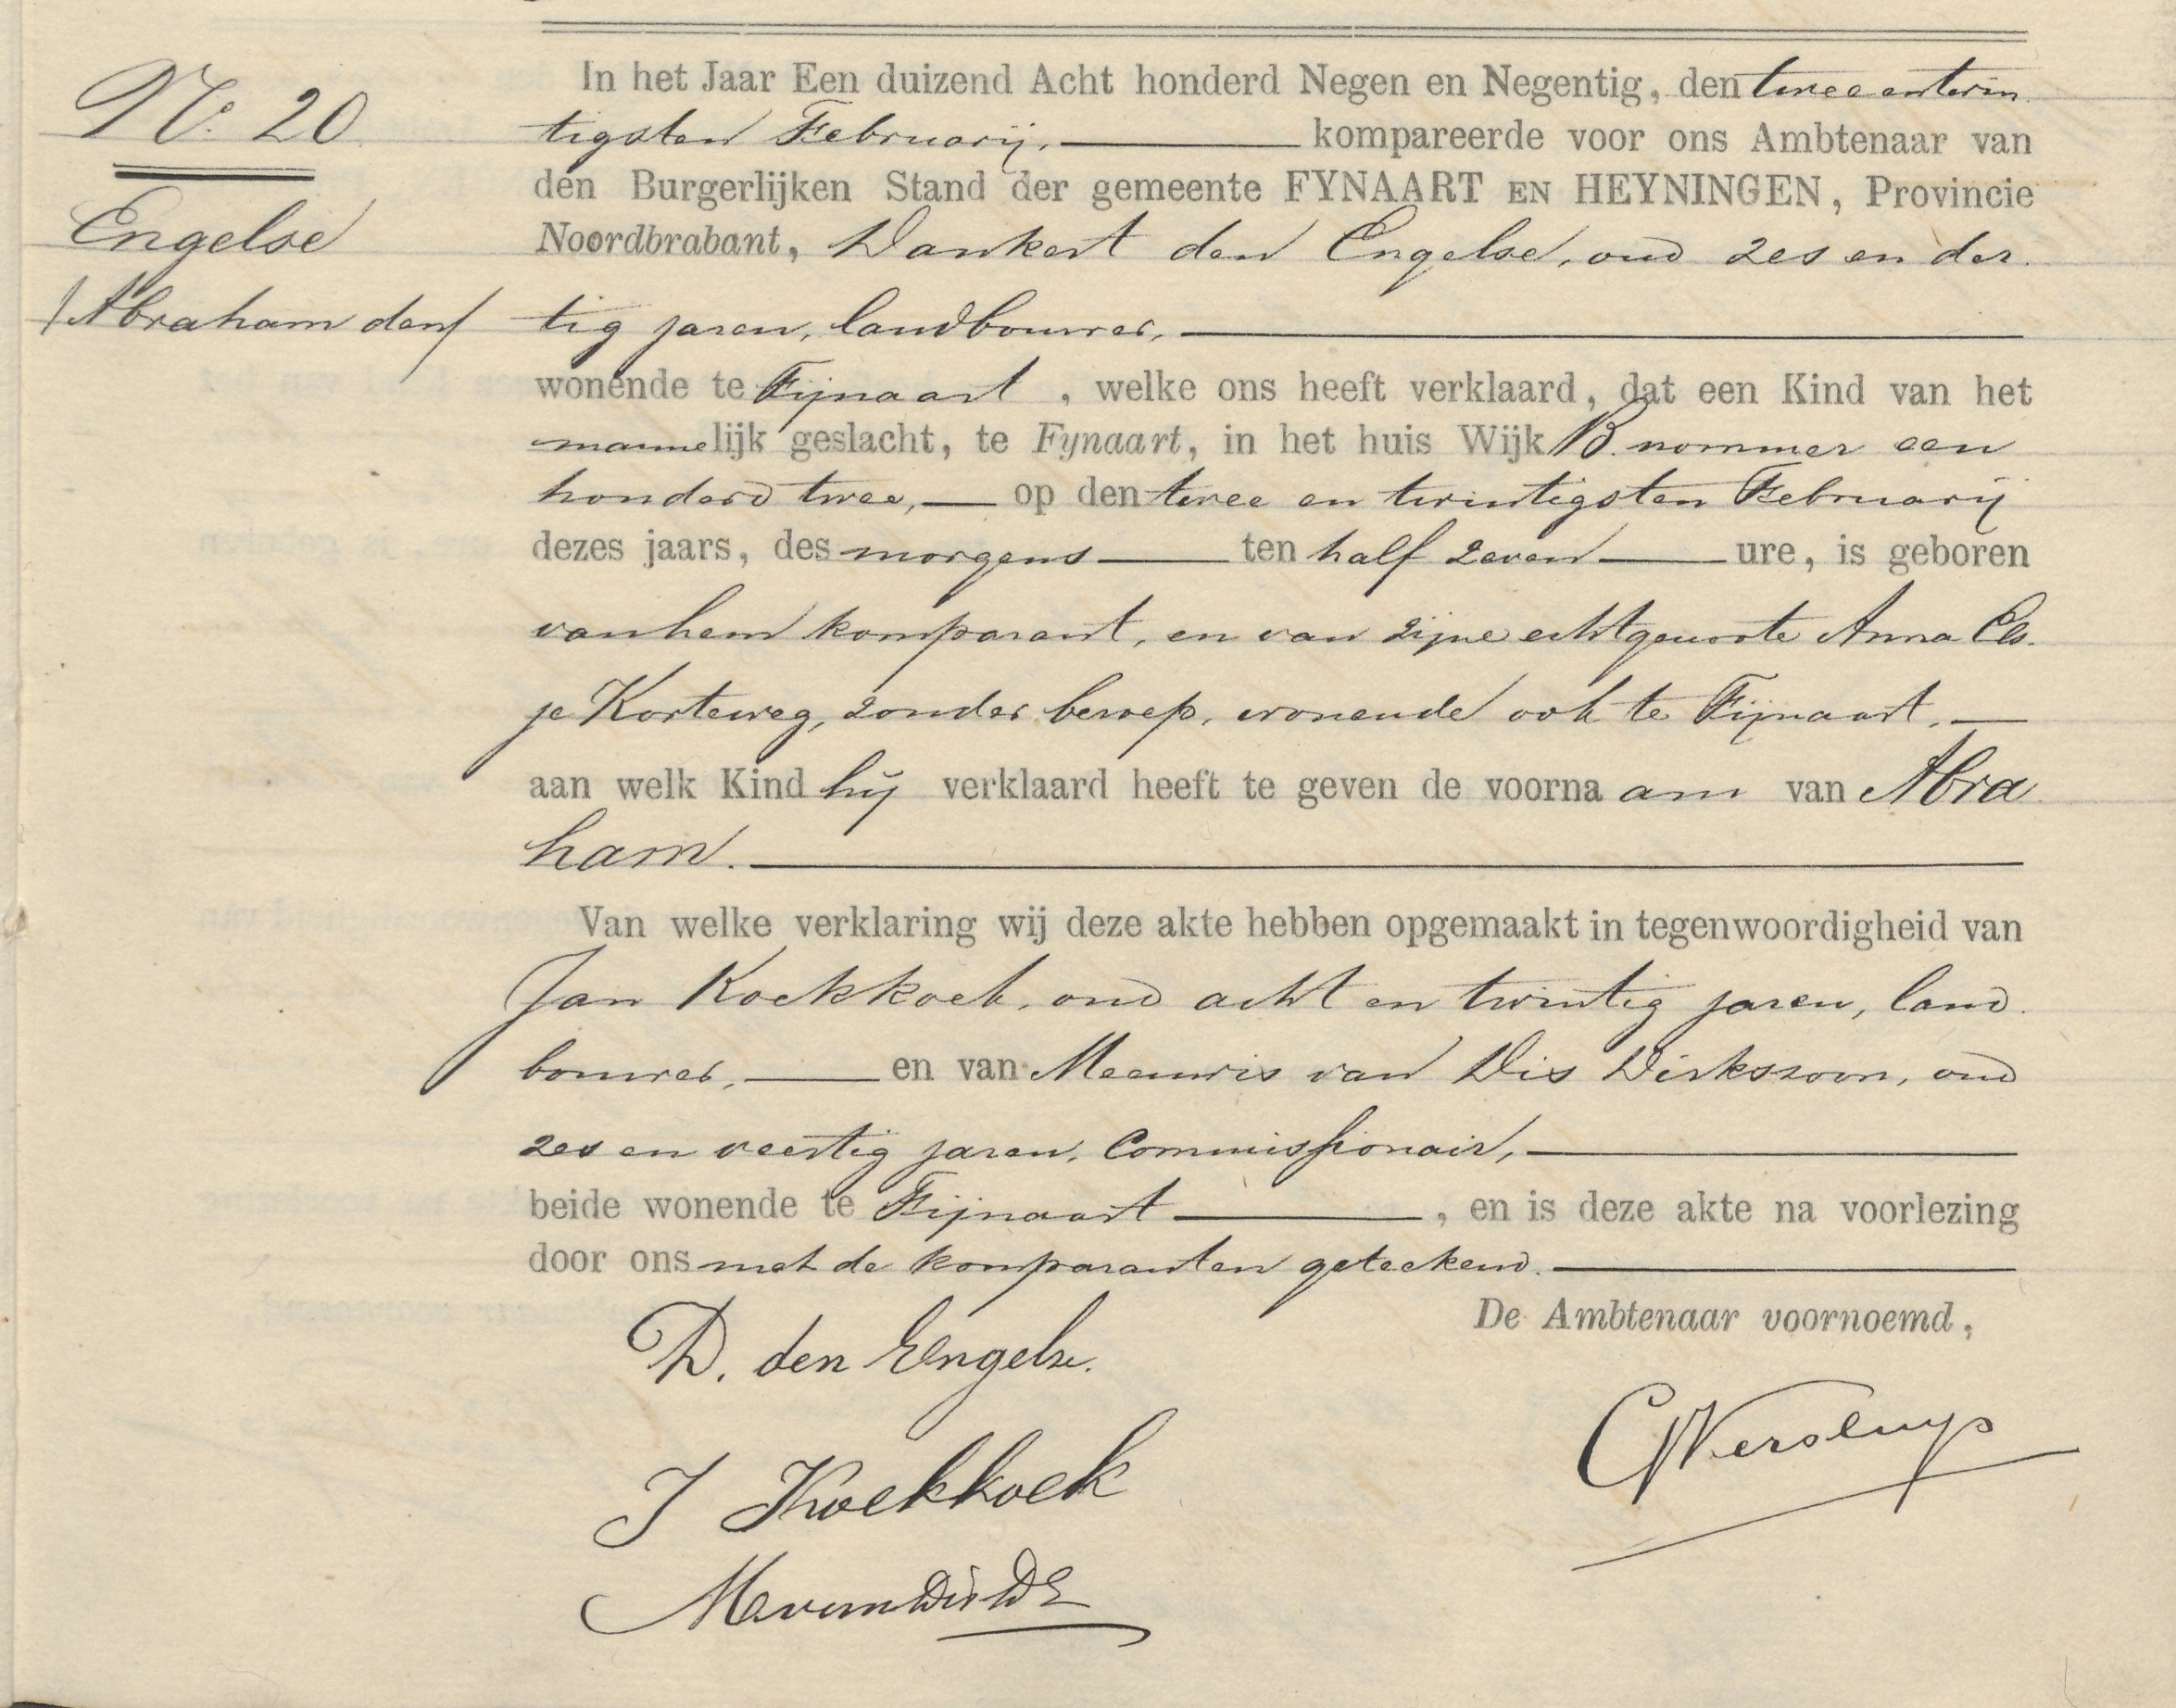 No. 20
Engelse
(Abraham den)
In het Jaar Een duizend Acht honderd Negen en Negentig, den twee entwin
tigsten Februarij, kompareerde voor ons Ambtenaar van
den Burgerlijken Stand der gemeente FYNAART EN HEYNINGEN, Provincie
Noordbrabant, Dankert den Engelse, oud zes en der
tig jaren, landbouwer,
wonende te Fijnaart, welke ons heeft verklaard, dat een Kind van het
mannelijk geslacht, te Fynaart, in het huis Wijk B. nommer een
honderd twee, op den twee en twintigsten Februarij
dezes jaars, des morgens ten half zeven ure, is geboren
van hem komparant, en van zijne echtgenoote Anna Els
je Korteweg, zonder beroep, wonende ook te Fijnaart.
aan welk Kind hij verklaard heeft te geven de voornaam van Abra
ham.
Van welke verklaring wij deze akte hebben opgemaakt in tegenwoordigheid van
Jan Koekkoek, oud acht en twintig jaren, land
bouwer, en van Meeuwis van Dis Dirkszoon, oud
zes en veertig jaren, Commissionair,
beide wonende te Fijnaart, en is deze akte na voorlezing
door ons met de komparanten geteekend.
De Ambtenaar voornoemd,
D. den Engelse.
J Koekkoek